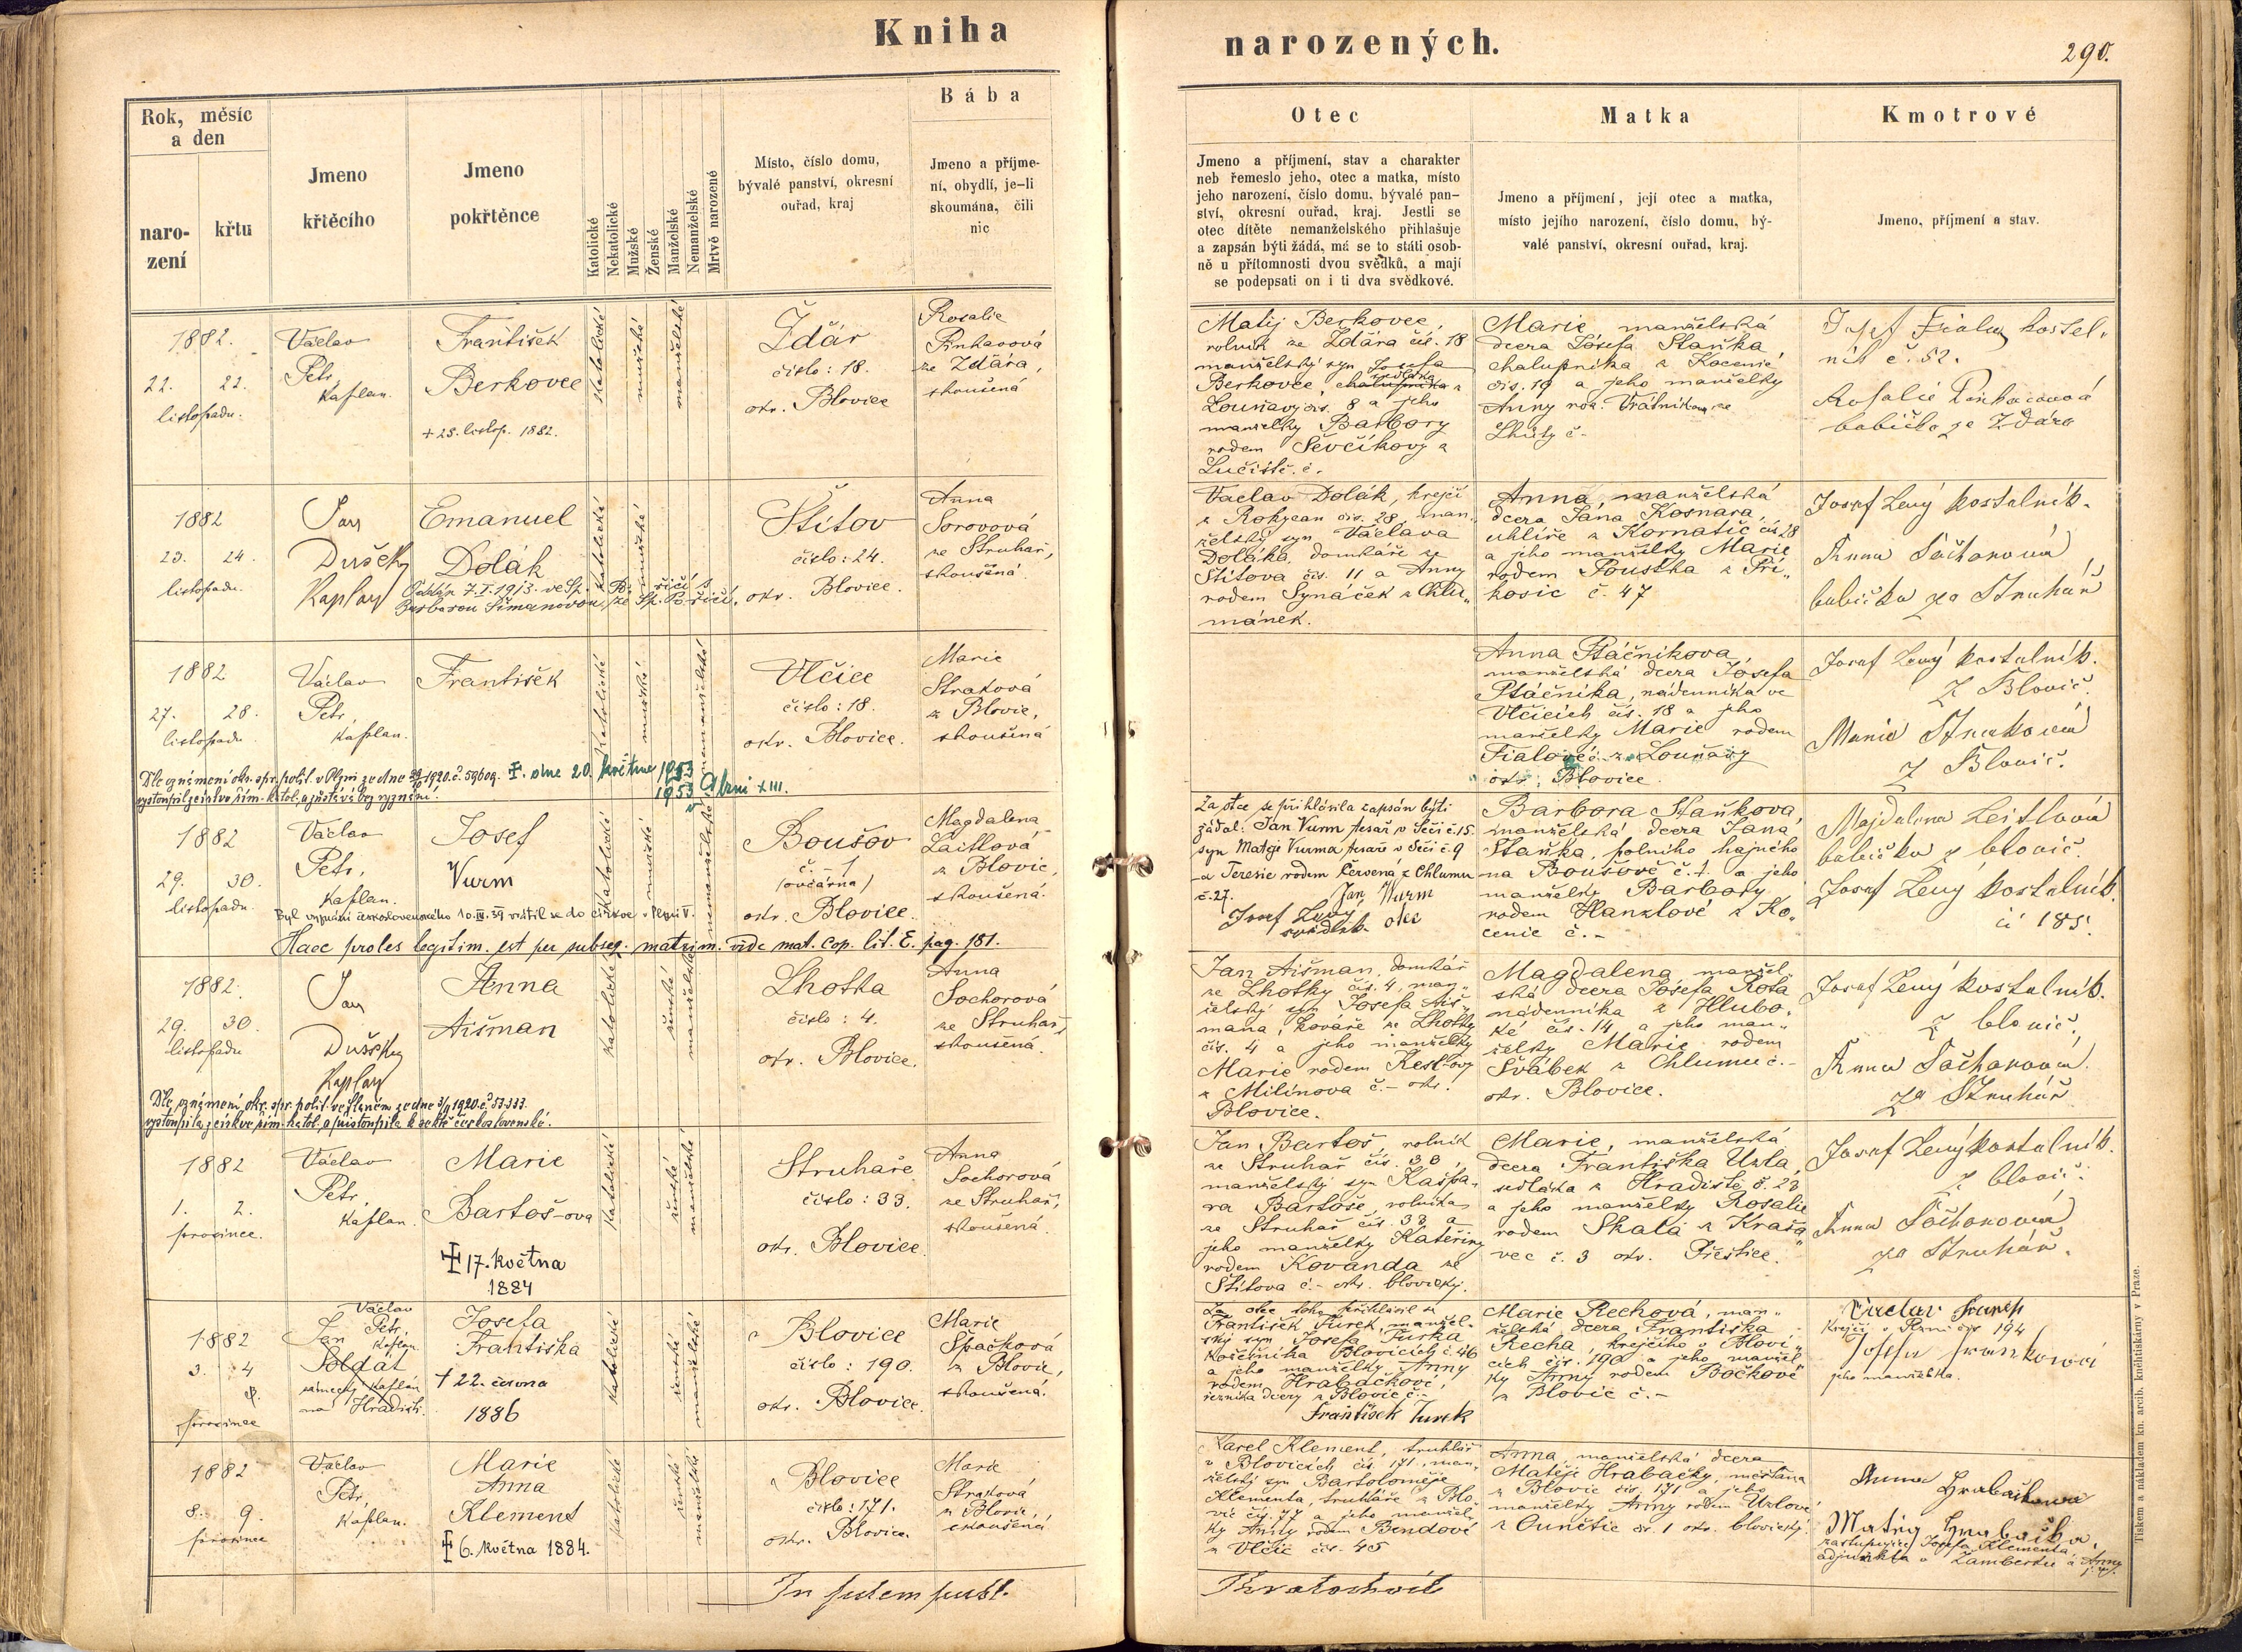 Kniha
narozených.
290.
Rok, měsíc
a den
naro-
zení
křtu
Jmeno
křtěcího
Jmeno
pokřtěnce
Katolické
Nekatolické
Mužské
Ženské
Manželské
Nemanželské
Mrtvě narozené
Místo, číslo domu,
bývalé panství, okresní
ouřad, kraj
Bába
Jmeno a příjme-
ní, obydlí, je-li
skoumána, čili
nic
Otec
Jmeno a příjmení, stav a charakter
neb řemeslo jeho, otec a matka, místo
jeho narození, číslo domu, bývalé pan-
ství, okresní ouřad, kraj. Jestli se
otec dítěte nemanželského přihlašuje
a zapsán býti žádá, má se to státi osob-
ně u přítomnosti dvou svědků, a mají
se podepsati on i ti dva svědkové.
Matka
Jmeno a příjmení, její otec a matka,
místo jejího narození, číslo domu, bý-
valé panství, okresní ouřad, kraj.
Kmotrové
Jmeno, příjmení a stav.
1882.
22. 22.
listopadu.
Václav
Petr,
kaplan.
František
Berkovec
+ 28. listop. 1882.
katolické
mužské
manželské
Ždár
číslo: 18.
okr. Blovice
Rosalie
Pinkasová
ze Ždára,
skoušená
Matěj Berkovec,
rolník ze Ždára čís. 18
manželský syn Josefa
Berkovce chalupníka z
sedláka
Louňavy čís. 8 a jeho
manželky Barbory
rodem Ševčíkovy z
Lučiště. č.
Marie, manželská
dcera Josefa Staňka
chalupníka z Kocenic
čís. 19 a jeho manželky
Anny roz. Vrátníkovy ze
Lhůty č-
Josef Fiala kostel-
ník č. 52.
Rosalie Pinkasová
babička ze Ždára
1882
23. 24.
listopadu.
Jan
Dušek
Kaplan
Emanuel
Dolák
Oddán 7.I.1913. ve Sp. Poříčí s
Barborou Šimanovou, ze Sp. Poříčí.
katolické
mužské
Štítov
číslo: 24.
okr. Blovice.
Anna
Sorovová
ze Struhař,
skoušená
Václav Dolák, krejčí
z Rokycan čís. 28, man-
želský syn Václava
Doláka, domkáře ze
Štítova čís. 11 a Anny
rodem Synáček z Chlu-
mánek.
Anna, manželská
dcera Jána Kosnara,
uhlíře z Kornatic čís. 28
a jeho manželky Marie
rodem Poustka z Pří-
kosic č. 47
Josef Levý kostelník.
Anna Sochorová
babička ze Struhař
1882
27. 28.
listopadu.
Václav
Petr,
kaplan.
František
katolické
mužské
nemanželské
Vlčice
číslo: 18.
okr. Blovice.
Marie
Straková
z Blovic,
skoušená
Anna Ptáčníkova,
manželská dcera Josefa
Ptáčníka, nádenníka ve
Vlčicích čís. 18 a jeho
manželky Marie rodem
Fialové z Louňavy
okr. Blovice.
Josef Levý kostelník.
z Blovic.
Marie Straková
z Blovic.
Dle oznámení okr. spr. polit. v Plzni ze dne 1920. č. 59609.
vystoupil z církve řím.-katol. a zůstává bez vyznání.
+. dne 20. května 1953
1953 v Brni XIII.
1882
29. 30.
listopadu.
Václav
Petr,
kaplan.
Josef
Vurm
katolické
mužské
nemanželské
Boušov
č. - 1
(ovčárna)
okr. Blovice.
Magdalena
Laitlová
z Blovic,
skoušená.
Byl vyznání československého 10.IV.39 vrátil se do církve v Plzni V.
Haec proles legitim. est per subseq. matrim. vide mat. cop. lit. E. pag. 181.
Za otce se přihlásil a zapsán býti
žádal: Jan Vurm tesař v Seči č. 15.
syn Matěje Vurma tesaře v Seči č. 9
a Teresie rodem Červená z Chlumu
č. 27.
Jan Wurm
otec
Josef Levý
svědek
Barbora Staňkova,
manželská dcera Jana
Staňka, polního hajného
na Boušově č. 1. a jeho
manželky Barbory
rodem Hanzlové z Ko-
cenic č. -
Majdalena Leitlová
babička z blovic.
Josef Levý kostelník.
č 185.
1882.
29. 30.
listopadu
Jan
Dušek
Kaplan
Anna
Aišman
katolické
ženské
manželské
Lhotka
číslo: 4.
okr. Blovice.
Anna
Sochorová
ze Struhař,
skoušená.
Jan Aišman, domkář
ze Lhotky čís. 4, man-
želský syn Josefa Aiš-
mana, kováře ze Lhotky
čís. 4 a jeho manželky
Marie rodem Kestl-ovy
z Milínova č. - okr.
Blovice.
Magdalena, manžel-
ská dcera Josefa Rota
nádenníka z Hlubo-
ké čís. 14 a jeho man-
želky Marie rodem
Švábek z Chlumu č. -
okr. Blovice.
Josef Levý kostelník.
z blovic.
Anna Sochorová
ze Struhař
Dle oznámení okr. spr. polit. ve Plzni ze dne 3/9 1920. č. 53.333.
vystoupila z církve řím. katol. a přistoupila k sektě československé.
1882
1. 2.
prosince.
Václav
Petr,
kaplan.
Marie
Bartoš-ova
+ 17. května
1884
katolické
ženské
manželské
Struhaře
číslo: 33.
okr. Blovice.
Anna
Sochorová
ze Struhař,
skoušená.
Jan Bartoš, rolník
ze Struhař čís. 33,
manželský syn Kašpa-
ra Bartoše, rolníka
ze Struhař čís. 33 a
jeho manželky Kateřiny
rodem Kovanda ze
Štítova č. - okr. blovický.
Marie, manželská
dcera Františka Uzla,
sedláka z Hradiště č. 23
a jeho manželky Rosalie
rodem Skala z Kraša-
vec č. 3 okr. Přeštice.
Josef Levý kostelník.
z blovic.
Anna Sochorová
ze Struhař.
1882
3. 4
prosince
Václav
Petr
Kaplan
Jan
Soldát
zámecký kaplan
na Hradišti.
Josefa
Františka
+ 22. června
1886
katolické
ženské
manželské
Blovice
číslo: 190.
okr. Blovice.
Marie
Špačková
z Blovic,
skoušená.
Za otce toho přihlásil se
František Turek, manžel-
ský syn Josefa Turka
kožešníka v Blovicích č. 46
a jeho manželky Anny
rodem Hrabačkové,
řezníka dcery z Blovic č. -
František Turek
Marie Rechová, man-
želská dcera Františka
Recha, krejčího v Blovi-
cích čís. 190 a jeho manžel-
ky Anny rodem Bočkové
z Blovic č. -
Václav
Krejčí v Plzni čís 194
jeho manželka.
1882
8. 9.
prosince
Václav
Petr,
kaplan.
Marie
Anna
Klement
+ 6. května 1884.
katolické
ženské
manželské
Blovice
číslo: 171.
okr. Blovice.
Marie
Straková
z Blovic,
skoušená
Karel Klement, truhlář
v Blovicích čís. 171, man-
želský syn Bartoloměje
Klementa, truhláře z Blo-
vic čís. 77 a jeho manžel-
ky Anny rodem Bendové
z Vlčic čís. 45
Anna, manželská dcera
Matěje Hrabačky, měšťana
z Blovic čís. 171 a jeho
manželky Anny rodem Uzlové
z Ounětic čís. 1 okr. blovický.
Anna Hrabačkova
Matěj Hrabačka,
zastupující Josefa Klementa
adjunkta v Žamberku a Anny
In fidem publ.
Kratochvíl
Tiskem a nákladem kn. arcib. knihtiskárny v Praze.